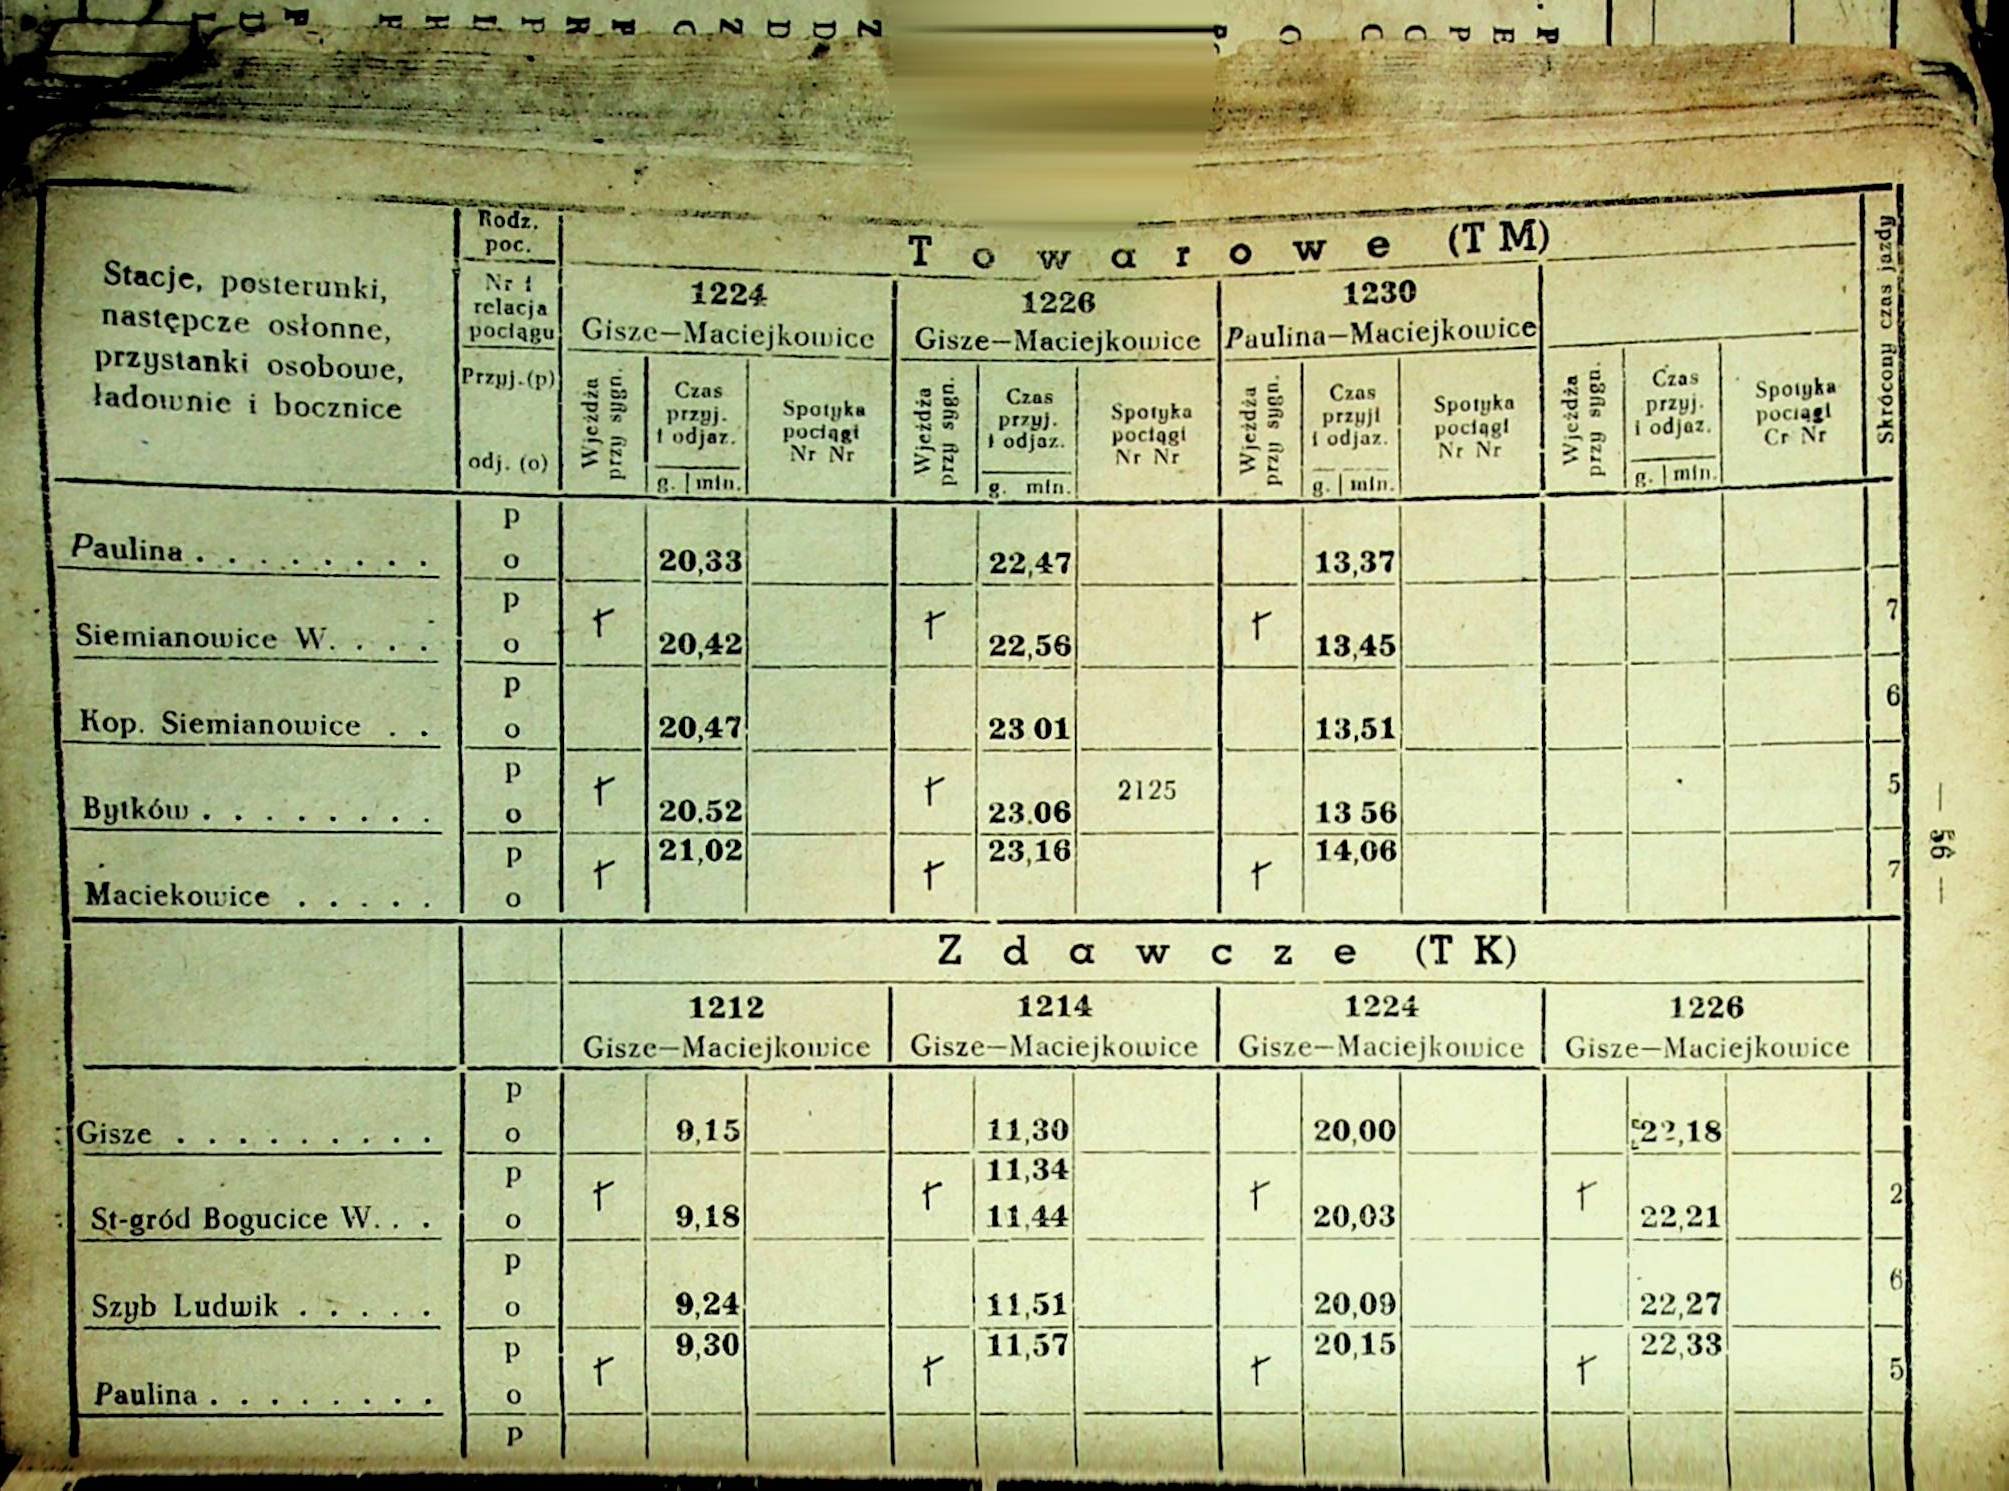 Stacje, posterunki,
następcze osłonne,
przystanki osobowe,
ładownie i bocznice
Rodz.
poc.
Nr i
relacja
pociągu
Przyj.(p)
odj. (o)
Towarowe (TM)
1224
Gisze—Maciejkowice
1226
Gisze—Maciejkowice
1230
Paulina—Maciejkowice
Wjeżdża
przy sygn.
Czas
przyj.
i odjaz.
g. | min.
Spotyka
pociągi
Nr Nr
Wjeżdża
przy sygn.
Czas
przyj.
i odjaz.
g. min.
Spotyka
pociągi
Nr Nr
Wjeżdża
przy sygn.
Czas
przyjl
i odjaz.
g. | min.
Spotyka
pociągi
Nr Nr
Wjeżdża
przy sygn.
Czas
przyj.
i odjaz.
g. | min.
Spotyka
pociągi
Cr Nr
Skrócony czas jazdy
p
Paulina . . . . . . . . o 20,33 22,47 13,37
p 7
Siemianowice W. . . . o 20,42 22,56 13,45
p 6
Kop. Siemianowice . . o 20,47 23 01 13,51
p 2125 5
Bytków . . . . . . . . o 20.52 23.06 13 56
p 21,02 23,16 14,06 7
Maciekowice . . . . . o
— 56 —
Zdawcze (TK)
1212 1214 1224 1226
Gisze—Maciejkowice Gisze—Maciejkowice Gisze—Maciejkowice Gisze—Maciejkowice
p
Gisze . . . . . . . . . o 9,15 11,30 20,00 22,18
p 11,34 2
St-gród Bogucice W. . . o 9,18 11,44 20,03 22,21
p 6
Szyb Ludwik . . . . . o 9,24 11,51 20,09 22,27
p 9,30 11,57 20,15 22,33 5
Paulina . . . . . . . . o
p